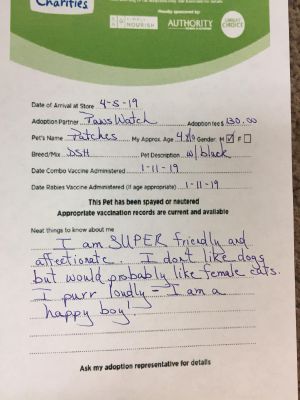 Charities
Proudly sponsored by:
SIMPLY
NOURISH
AUTHORITY
GREAT
CHOICE
Date of Arrival at Store 4-5-19
Adoption Partner PawsWatch Adoption fee $ 130.00
Pet's Name Patches My Approx. Age 4 y/o Gender: M ☑ F ☐
Breed/Mix DSH Pet Description w/black
Date Combo Vaccine Administered 1-11-19
Date Rabies Vaccine Administered (if age appropriate) 1-11-19
This Pet has been spayed or neutered
Appropriate vaccination records are current and available
Neat things to know about me
I am SUPER friendly and
affectionate. I don't like dogs
but would probably like female cats.
I purr loudly - I am a
happy boy!
Ask my adoption representative for details